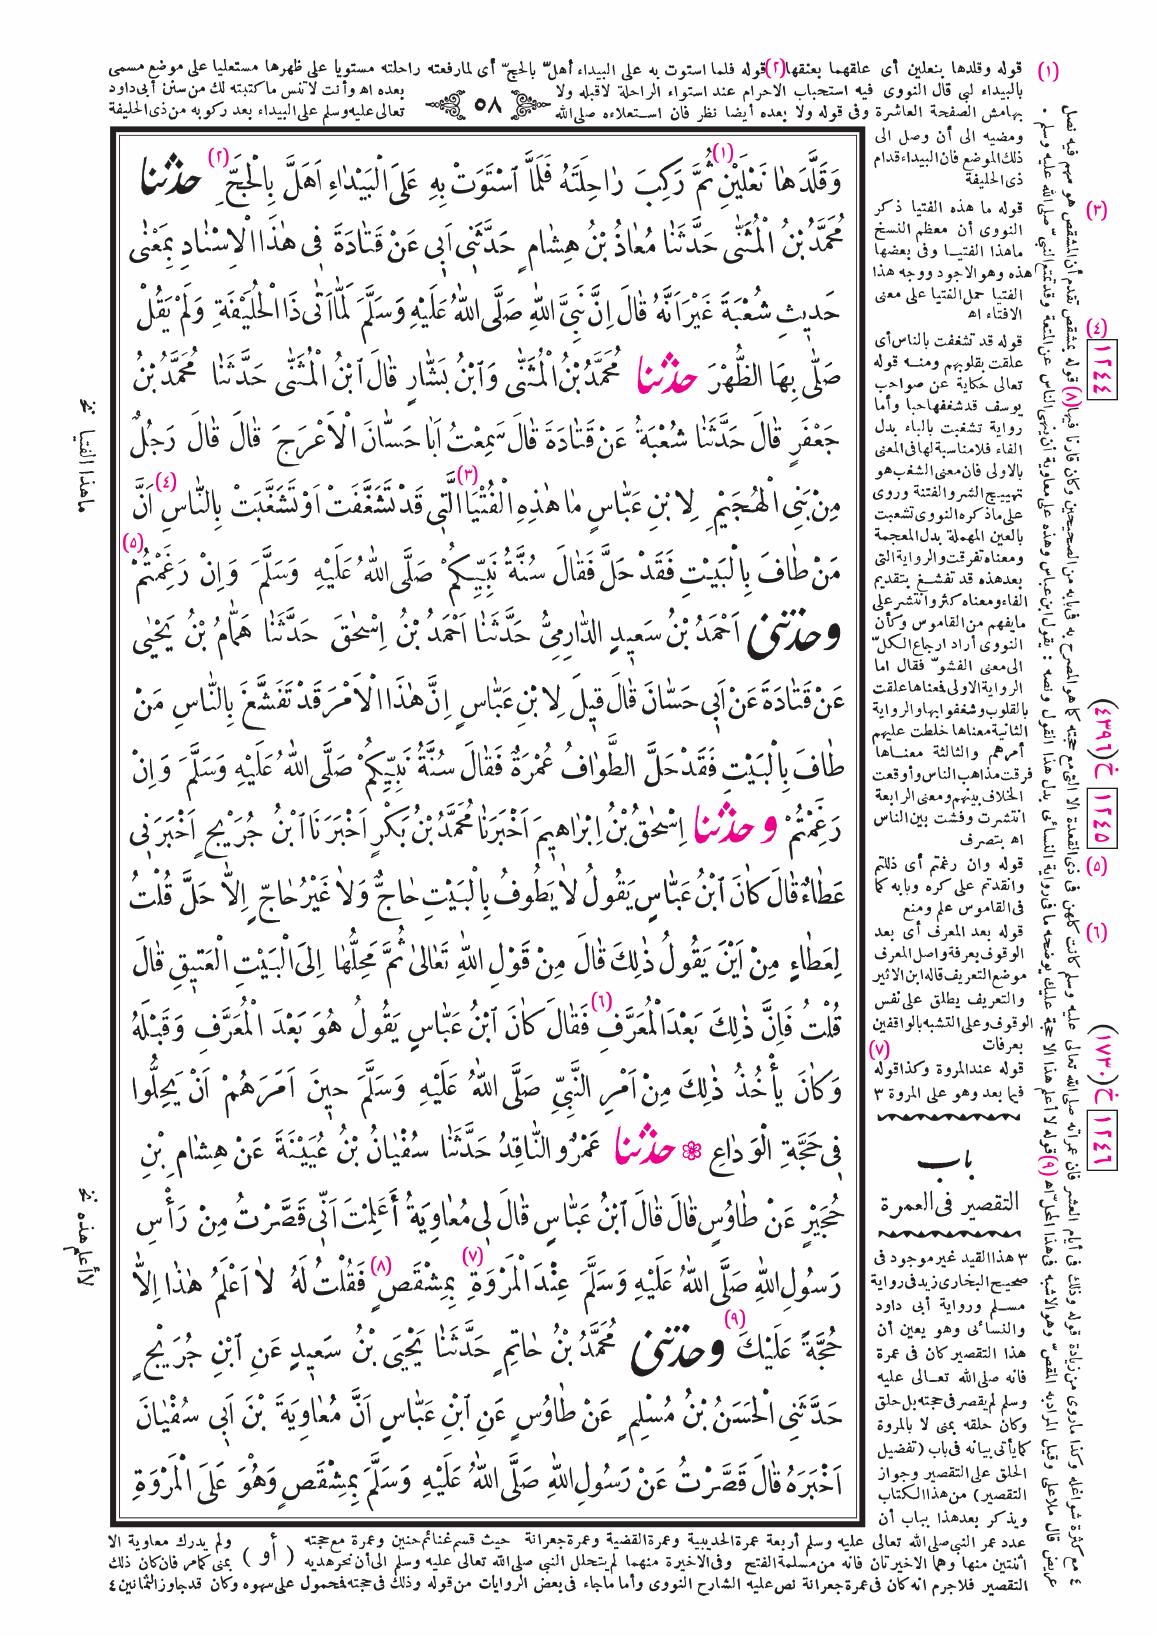 (١) قوله وقلدها بنعلين أى علقهما بعنقها (٢) قوله فلما استوت به على البيداء أهلّ بالحجّ أى لما رفعته راحلته مستويا على ظهرها مستعليا على موضع مسمى
بالبيداء لبى قال النووى فيه استحباب الاحرام عند استواء الراحلة لا قبله ولا
بعده اه وأنت لا تنس ما كتبته لك من سنن أبى داود
بهامش الصفحة العاشرة وفى قوله ولا بعده أيضا نظر فان استعلاءه صلى الله
تعالى عليه وسلم على البيداء بعد ركوبه من ذى الحليفة
٥٨
وَقَلَّدَهَا نَعْلَيْنِ (١) ثُمَّ رَكِبَ رَاحِلَتَهُ فَلَمَّا اسْتَوَتْ بِهِ عَلَى الْبَيْدَاءِ اَهَلَّ بِالْحَجِّ (٢) حدثنا
مُحَمَّدُ بْنُ الْمُثَنَّى حَدَّثَنَا مُعَاذُ بْنُ هِشَامٍ حَدَّثَنِى اَبِى عَنْ قَتَادَةَ فِى هٰذَا الْاِسْنَادِ بِمَعْنٰى
حَدِيثِ شُعْبَةَ غَيْرَ اَنَّهُ قَالَ اِنَّ نَبِىَّ اللّٰهِ صَلَّى اللّٰهُ عَلَيْهِ وَسَلَّمَ لَمَّا اَتٰى ذَا الْحُلَيْفَةِ وَلَمْ يَقُلْ
صَلَّى بِهَا الظُّهْرَ حدثنا مُحَمَّدُ بْنُ الْمُثَنَّى وَابْنُ بَشَّارٍ قَالَ ابْنُ الْمُثَنَّى حَدَّثَنَا مُحَمَّدُ بْنُ
جَعْفَرٍ قَالَ حَدَّثَنَا شُعْبَةُ عَنْ قَتَادَةَ قَالَ سَمِعْتُ اَبَا حَسَّانَ الْاَعْرَجَ قَالَ قَالَ رَجُلٌ
مِنْ بَنِى الْهُجَيْمِ لِابْنِ عَبَّاسٍ مَا هٰذِهِ الْفُتْيَا (٣) الَّتِى قَدْ تَشَغَّفَتْ اَوْ تَشَغَّبَتْ بِالنَّاسِ (٤) اَنَّ
مَنْ طَافَ بِالْبَيْتِ فَقَدْ حَلَّ فَقَالَ سُنَّةُ نَبِيِّكُمْ صَلَّى اللّٰهُ عَلَيْهِ وَسَلَّمَ وَاِنْ رَغِمْتُمْ (٥)
وحدثنى اَحْمَدُ بْنُ سَعِيدٍ الدَّارِمِىُّ حَدَّثَنَا اَحْمَدُ بْنُ اِسْحٰقَ حَدَّثَنَا هَمَّامُ بْنُ يَحْيٰى
عَنْ قَتَادَةَ عَنْ اَبِى حَسَّانَ قَالَ قِيلَ لِابْنِ عَبَّاسٍ اِنَّ هٰذَا الْاَمْرَ قَدْ تَفَشَّغَ بِالنَّاسِ مَنْ
طَافَ بِالْبَيْتِ فَقَدْ حَلَّ الطَّوَافُ عُمْرَةٌ فَقَالَ سُنَّةُ نَبِيِّكُمْ صَلَّى اللّٰهُ عَلَيْهِ وَسَلَّمَ وَاِنْ
رَغِمْتُمْ وحدثنا اِسْحٰقُ بْنُ اِبْرَاهِيمَ اَخْبَرَنَا مُحَمَّدُ بْنُ بَكْرٍ اَخْبَرَنَا ابْنُ جُرَيْجٍ اَخْبَرَنِى
عَطَاءٌ قَالَ كَانَ ابْنُ عَبَّاسٍ يَقُولُ لَا يَطُوفُ بِالْبَيْتِ حَاجٌّ وَلَا غَيْرُ حَاجٍّ اِلَّا حَلَّ قُلْتُ
لِعَطَاءٍ مِنْ اَيْنَ يَقُولُ ذٰلِكَ قَالَ مِنْ قَوْلِ اللّٰهِ تَعَالٰى ثُمَّ مَحِلُّهَا اِلَى الْبَيْتِ الْعَتِيقِ قَالَ
قُلْتُ فَاِنَّ ذٰلِكَ بَعْدَ الْمُعَرَّفِ (٦) فَقَالَ كَانَ ابْنُ عَبَّاسٍ يَقُولُ هُوَ بَعْدَ الْمُعَرَّفِ وَقَبْلَهُ
وَكَانَ يَأْخُذُ ذٰلِكَ مِنْ اَمْرِ النَّبِىِّ صَلَّى اللّٰهُ عَلَيْهِ وَسَلَّمَ حِينَ اَمَرَهُمْ اَنْ يَحِلُّوا
فِى حَجَّةِ الْوَدَاعِ ❁ حدثنا عَمْرٌو النَّاقِدُ حَدَّثَنَا سُفْيَانُ بْنُ عُيَيْنَةَ عَنْ هِشَامِ بْنِ
حُجَيْرٍ عَنْ طَاوُسٍ قَالَ قَالَ ابْنُ عَبَّاسٍ قَالَ لِى مُعَاوِيَةُ أَعَلِمْتَ اَنِّى قَصَّرْتُ مِنْ رَأْسِ
رَسُولِ اللّٰهِ صَلَّى اللّٰهُ عَلَيْهِ وَسَلَّمَ عِنْدَ الْمَرْوَةِ (٧) بِمِشْقَصٍ (٨) فَقُلْتُ لَهُ لَا اَعْلَمُ هٰذَا اِلَّا
حُجَّةً عَلَيْكَ (٩) وحدثنى مُحَمَّدُ بْنُ حَاتِمٍ حَدَّثَنَا يَحْيَى بْنُ سَعِيدٍ عَنِ ابْنِ جُرَيْجٍ
حَدَّثَنِى الْحَسَنُ بْنُ مُسْلِمٍ عَنْ طَاوُسٍ عَنِ ابْنِ عَبَّاسٍ اَنَّ مُعَاوِيَةَ بْنَ اَبِى سُفْيَانَ
اَخْبَرَهُ قَالَ قَصَّرْتُ عَنْ رَسُولِ اللّٰهِ صَلَّى اللّٰهُ عَلَيْهِ وَسَلَّمَ بِمِشْقَصٍ وَهُوَ عَلَى الْمَرْوَةِ
ومضيه الى أن وصل الى
ذلك الموضع فان البيداء قدام
ذى الحليفة
(٣) قوله ما هذه الفتيا ذكر
النووى أن معظم النسخ
ماهذا الفتيا وفى بعضها
هذه وهو الاجود ووجه هذا
الفتيا حمل الفتيا على معنى
الافتاء اه
(٤) قوله قد تشغفت بالناس أى
علقت بقلوبهم ومنه قوله
تعالى حكاية عن صواحب
يوسف قد شغفها حبا وأما
رواية تشغبت بالباء بدل
الفاء فلا مناسبة لها فى المعنى
بالاولى فان معنى الشغب هو
تهييج الشر والفتنة وروى
على ما ذكره النووى تشعبت
بالعين المهملة بدل المعجمة
ومعناه تفرقت والرواية التى
بعد هذه قد تفشغ بتقديم
الفاء ومعناه كثر وانتشر على
ما يفهم من القاموس وكأن
النووى أراد ارجاع الكلّ
الى معنى الفشوّ فقال اما
الرواية الاولى فمعناها علقت
بالقلوب وشغفوا بها والرواية
الثانية معناها خلطت عليهم
أمرهم والثالثة معناها
فرقت مذاهب الناس وأوقعت
الخلاف بينهم ومعنى الرابعة
انتشرت وفشت بين الناس
اه بتصرف
(٥) قوله وان رغمتم أى ذللتم
وانقدتم على كره وبابه كما
فى القاموس علم ومنع
(٦) قوله بعد المعرف أى بعد
الوقوف بعرفة واصل المعرف
موضع التعريف قاله ابن الاثير
والتعريف يطلق على نفس
الوقوف وعلى التشبه بالواقفين
بعرفات
(٧) قوله عند المروة وكذا قوله
فيما بعد وهو على المروة ٣
باب
التقصير فى العمرة
٣ هذا القيد غير موجود فى
صحيح البخارى زيد فى رواية
مسلم ورواية أبى داود
والنسائى وهو يعين أن
هذا التقصير كان فى عمرة
فانه صلى الله تعالى عليه
وسلم لم يقصر فى حجته بل حلق
وكان حلقه بمنى لا بالمروة
كما يأتى بيانه فى باب (تفضيل
الحلق على التقصير وجواز
التقصير) من هذا الكتاب
ويذكر بعد هذا بباب أن
عدد عمر النبى صلى الله تعالى عليه وسلم أربعة عمرة الحديبية وعمرة القضية وعمرة جعرانة حيث قسم غنائم حنين وعمرة مع حجته ولم يدرك معاوية الا
اثنتين منها وهما الاخيرتان فانه من مسلمة الفتح وفى الاخيرة منهما لم يتحلل النبى صلى الله تعالى عليه وسلم الى أن نحر هديه بمنى كما مر فان كان ذلك
( أو )
التقصير فلا جرم انه كان فى عمرة جعرانة نص عليه الشارح النووى وأما ما جاء فى بعض الروايات من قوله وذلك فى حجته فمحمول على سهوه وكان قد جاوز الثمانين ٤
١٢٤٤
خ (٤٣٩٦)
١٢٤٥
خ (١٧٣٠)
١٢٤٦
ماهذا الفتيا نخ
لا أعلم هذه نخ